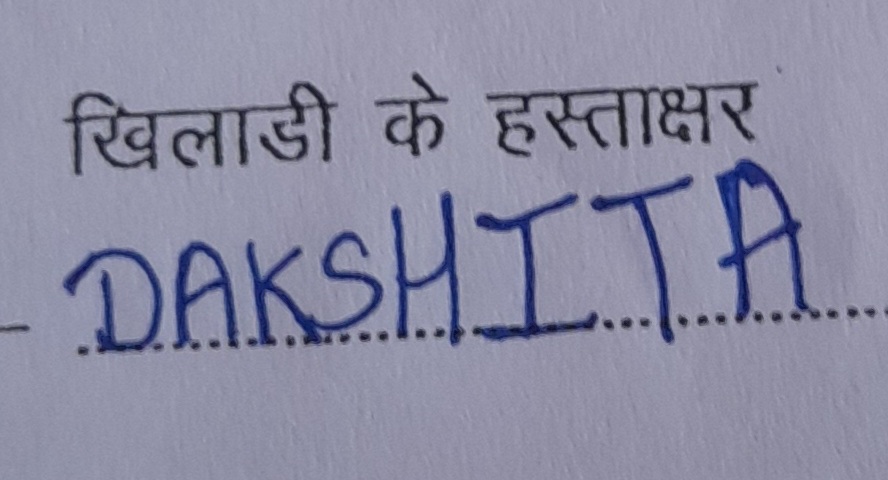 खिलाडी के हस्ताक्षर
DAKSHITA